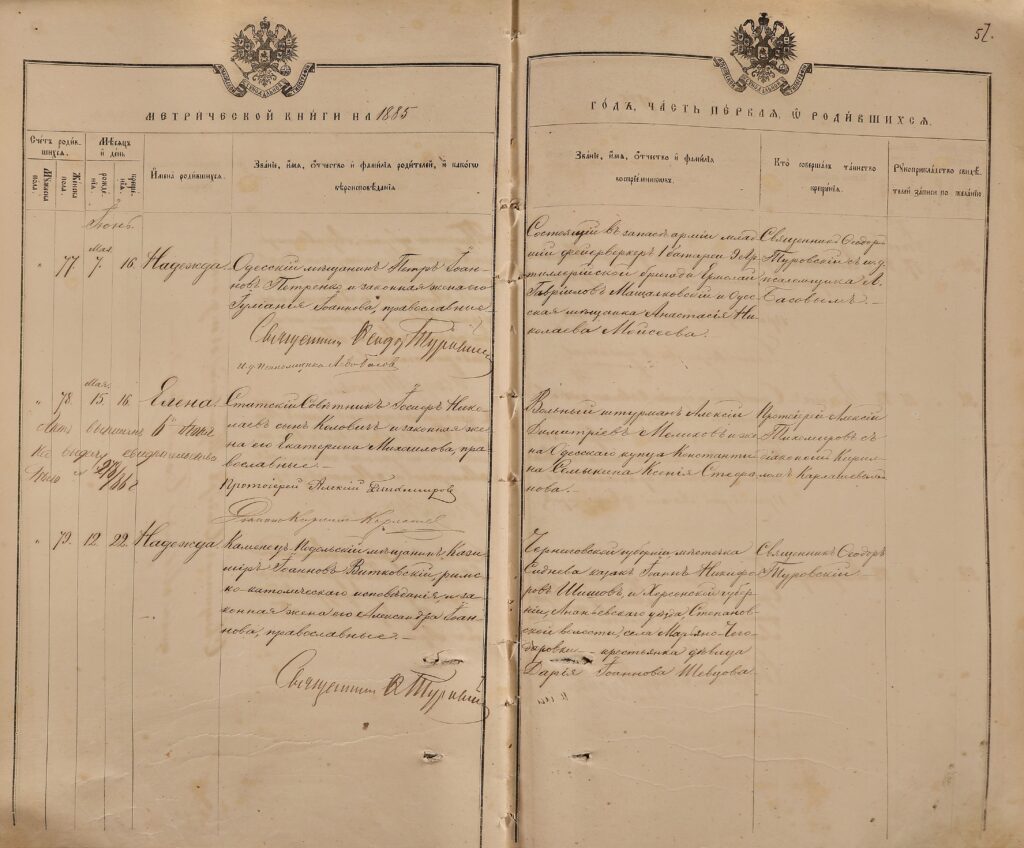 57.
МЕТРИЧЕСКОЙ КНИГИ НА 1885
ГОДЪ, ЧАСТЬ ПЕРВАЯ, Ѿ РОДИВШИХСЯ.
Счетъ родив
шихся.
Мужеска
пола.
Женска
пола.
Мѣсяцъ
и день.
рожде
нія.
креще
нія.
Имена родившихся.
Званіе, имя, отчество и фамилія родителей, и какогѡ
вѣроисповѣданія
Званіе, имя, отчество и фамилія
воспріемниковъ.
Кто совершалъ таинство
крещенія.
Рукоприкладство свидѣ
телей записи по желанію
Іюнь.
Мая
„ 77. 7. 16. Надежда
Одесскій мѣщанинъ Петръ Іоан-
новъ Петренко и законная жена его
Іуліанія Іоаннова, православные.
Священникъ Ѳеодоръ Туровскій
и. д. псаломщика А. Басовъ
Состоящій въ запасѣ арміи млад
шій фейерверкеръ 1 батареи
тиллерійской бригады Ермолай
Гавріиловъ Машалковскій и Одес-
ская мѣщанка Анастасія Ни-
колаева Моисеева.
Священникъ Ѳеодоръ
Туровскій съ и. д.
псаломщика А.
Басовымъ.
Мая.
„ 78. 15. 16. Елена
Статскій Совѣтникъ Іосифъ Нико-
лаевъ сынъ и законная же-
на его Екатерина Михаилова, пра-
вославные.
Протоіерей Алексій Тихомировъ
Діаконъ Кириллъ
Вольный штурманъ Алексій
Димитріевъ и же-
на Одесскаго купца Константи-
на Ксенія Стефа-
нова.
Протоіерей Алексій
Тихомировъ съ
діакономъ Кирил-
ломъ
„ 79. 12. 22. Надежда
Каменецъ-Подольскій мѣщанинъ Кази-
міръ Іоанновъ Витковскій, римс-
ко-католическаго исповѣданія и за-
конная жена его Александра Іоан-
нова, православные.
Священникъ Ѳ. Туровскій
Черниговской губерніи мѣстечка
Седнева казакъ Іоаннъ Никифо-
ровъ Шишовъ, и Херсонской губер-
ніи, Ананьевскаго уѣзда, Степанов-
ской волости, села Марьяно-Чего-
даровки крестьянка дѣвица
Дарья Іоаннова Шевцова.
Священникъ Ѳеодоръ
Туровскій